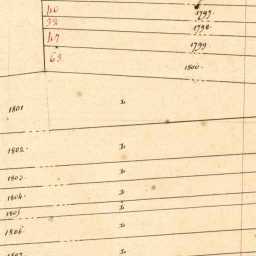 40 1797.
38 1798.
47 1799
63 1800.
1801
1802.
1803.
1804.
1805
1806
1807.